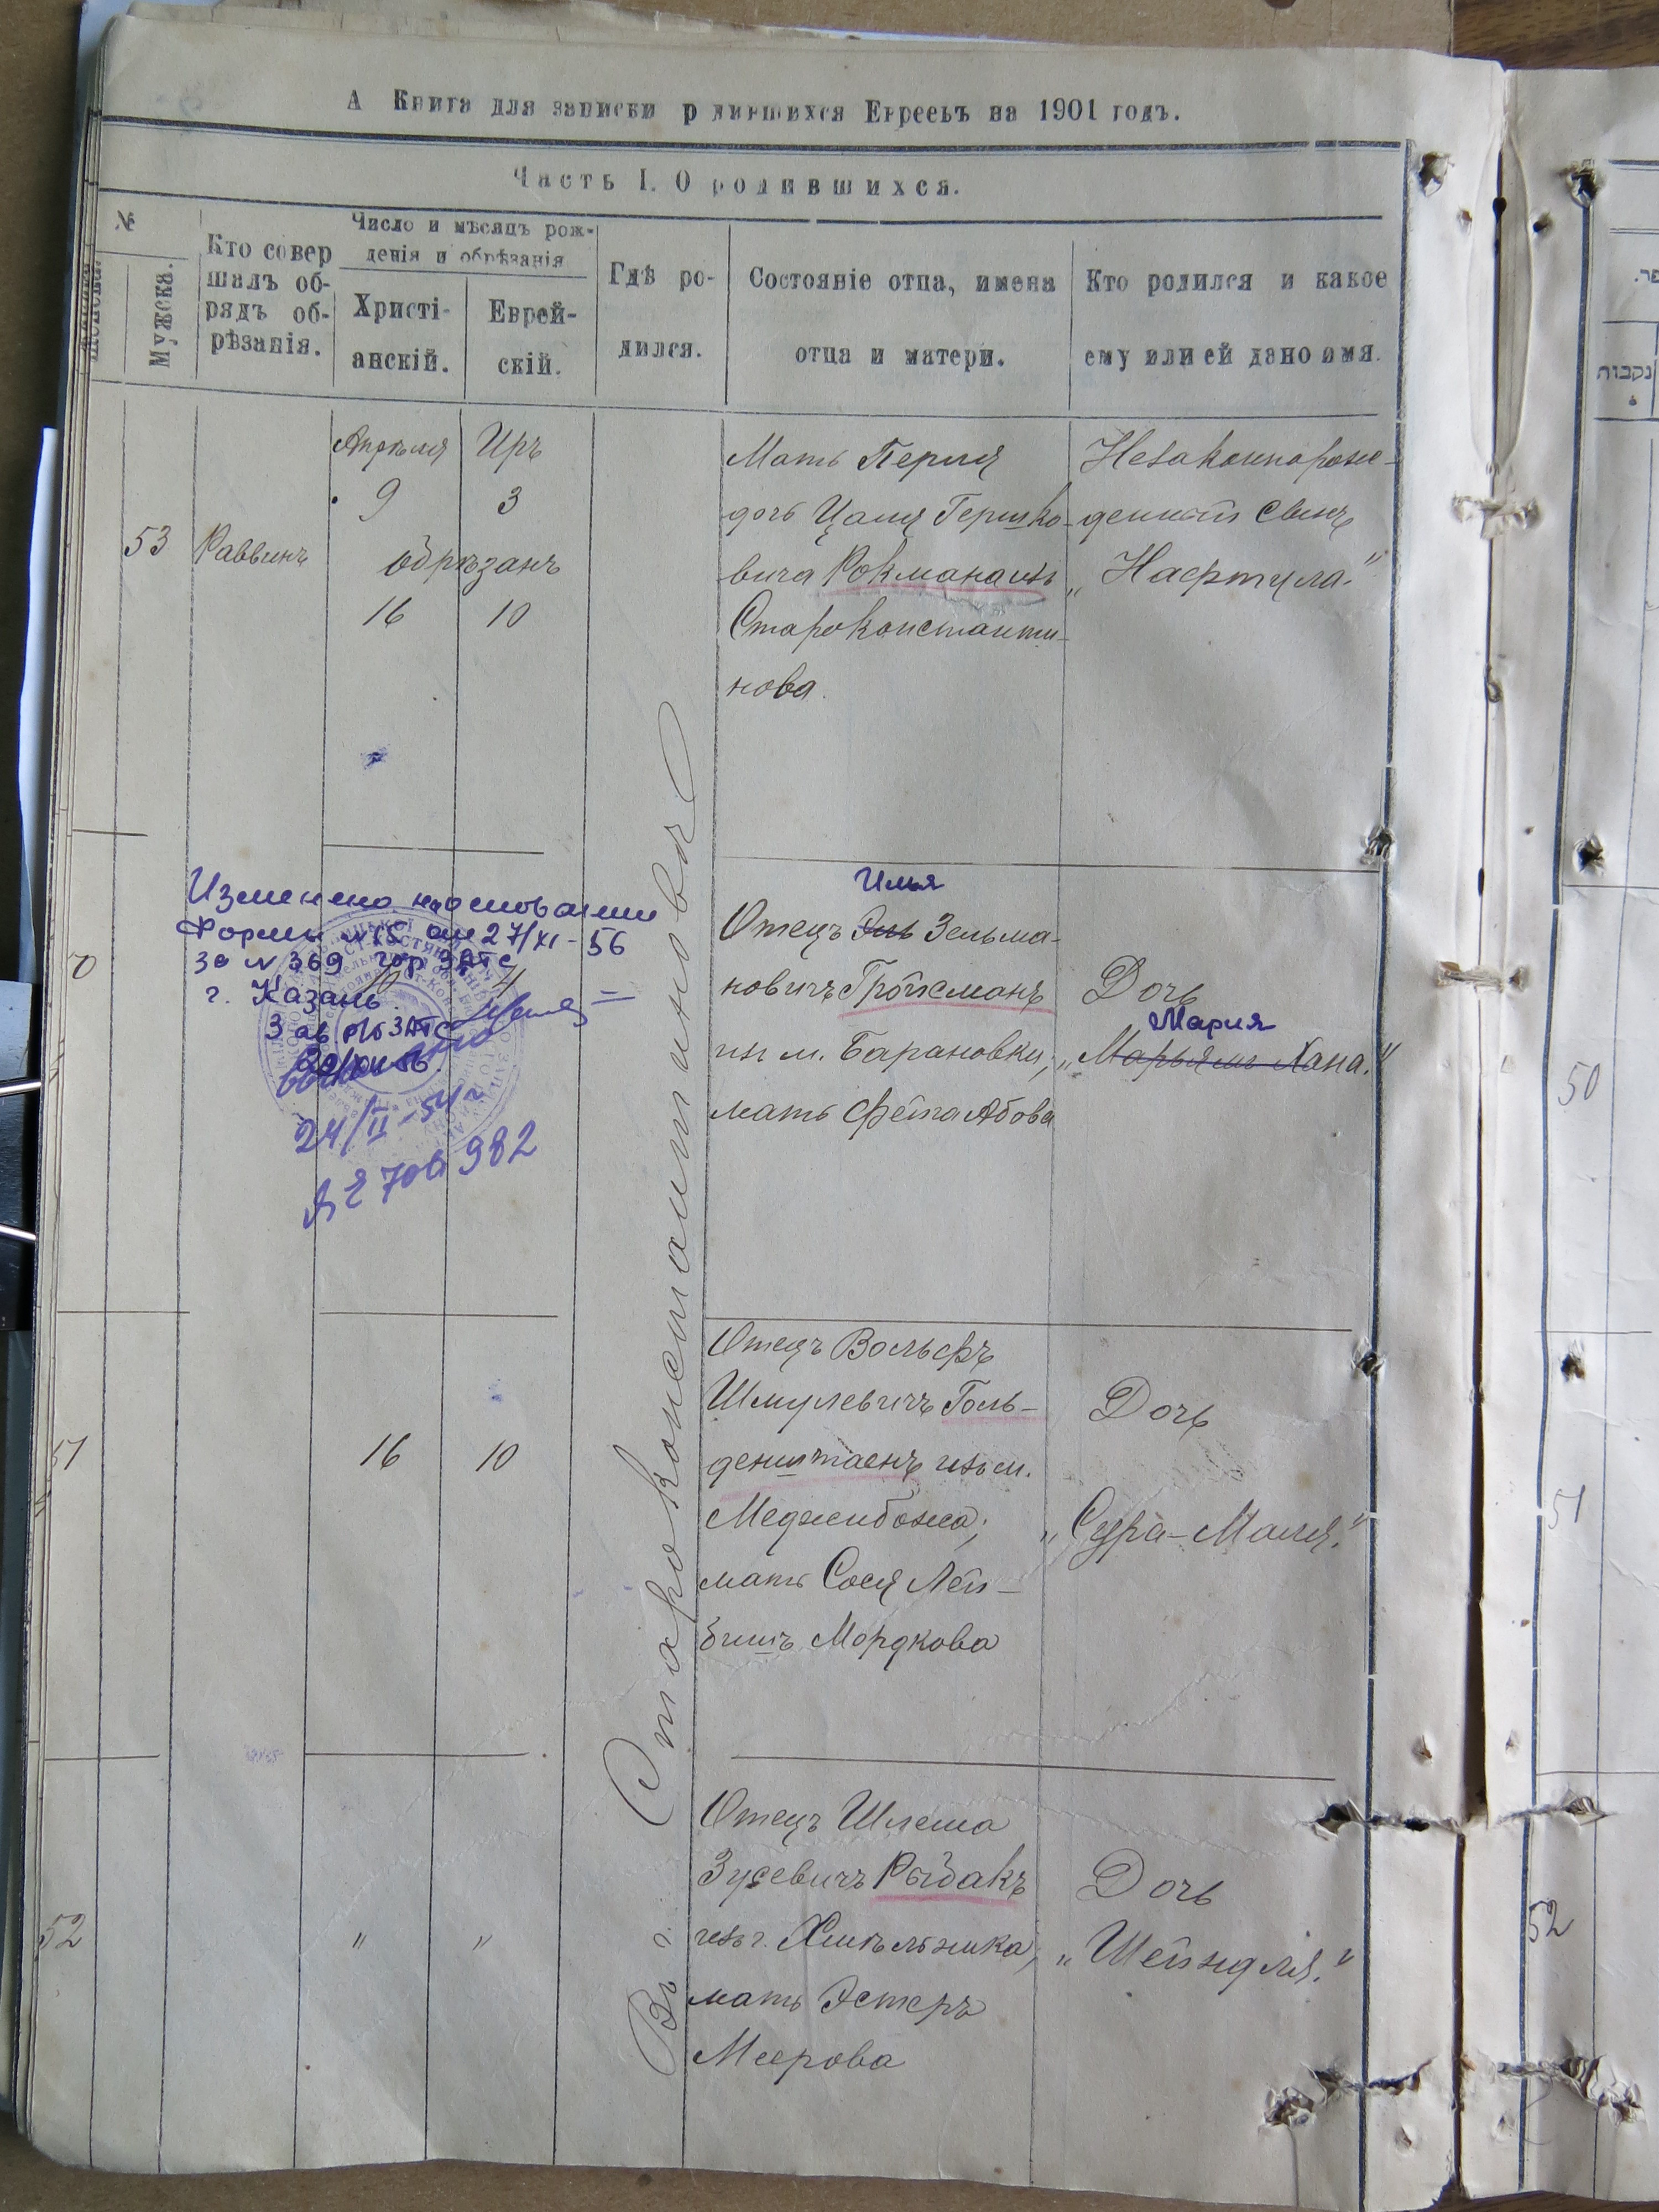 А Книга для записки р дившихся Евреевъ на 1901 годъ.
Часть I. О родившихся.
№
Мужска.
Кто совер
шалъ об-
рядъ об-
рѣзанія.
Число и мѣсяцъ рож-
денія и обрѣзанія
Христі-
анскій.
Еврей-
скій.
Гдѣ ро-
дился.
Состояніе отца, имена
отца и матери.
Кто родился и какое
ему или ей дано имя.
53
Раввинъ
Апрѣля
9
Иръ
3
обрѣзанъ
16
10
Въ г. Староконстантиновѣ
Мать Перля
дочь Цаля Гершко-
вича Рокмана изъ
Староконстанти-
нова.
Незаконнорож-
денный сынъ
„Нафтула."
0
Изменено на основании
Формы №15 от 27/XI-56
за №369 гор ЗАГС
г. Казань
Зав
24/II-
982
10
4
Илья
Отецъ Эль Зельма-
новичъ Гройсманъ
изъ м. Барановки;
мать Фейга Абова
Дочь
Мария
„Марьямъ Хана."
51
16
10
Отецъ Вольфъ
Шмулевичъ Голь-
денштаенъ изъ м.
Меджибожа;
мать Сося Лей-
бишъ Мордкова
Дочь
„Сура-Маля."
52
"
"
Отецъ Шлема
Зусевичъ Рыбакъ
изъ г. Хмѣльника,
мать Эстеръ
Меерова
Дочь
„Шейндля."
נקבות
50
51
52